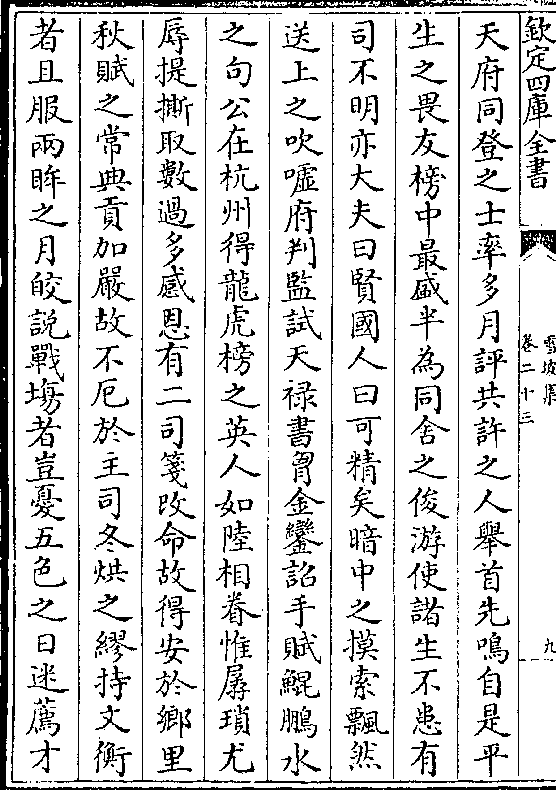 欽定四庫全書
雪坡集
卷二十三
九
天府同登之士率多月評共許之人舉首先鳴自是平
生之畏友榜中最盛半為同舍之俊游使諸生不患有
司不明亦大夫曰賢國人曰可精矣暗中之摸索飄然
送上之吹噓府判監試天禄書胄金鑾詔手賦鯤鵬水
之句公在杭州得龍虎榜之英人如陸相眷惟孱瑣尤
辱提撕取數過多感恩有二司箋改命故得安於鄉里
秋賦之常典貢加嚴故不厄於主司冬烘之繆持文衡
者且服兩眸之月皎説戰場者豈憂五色之日迷薦才